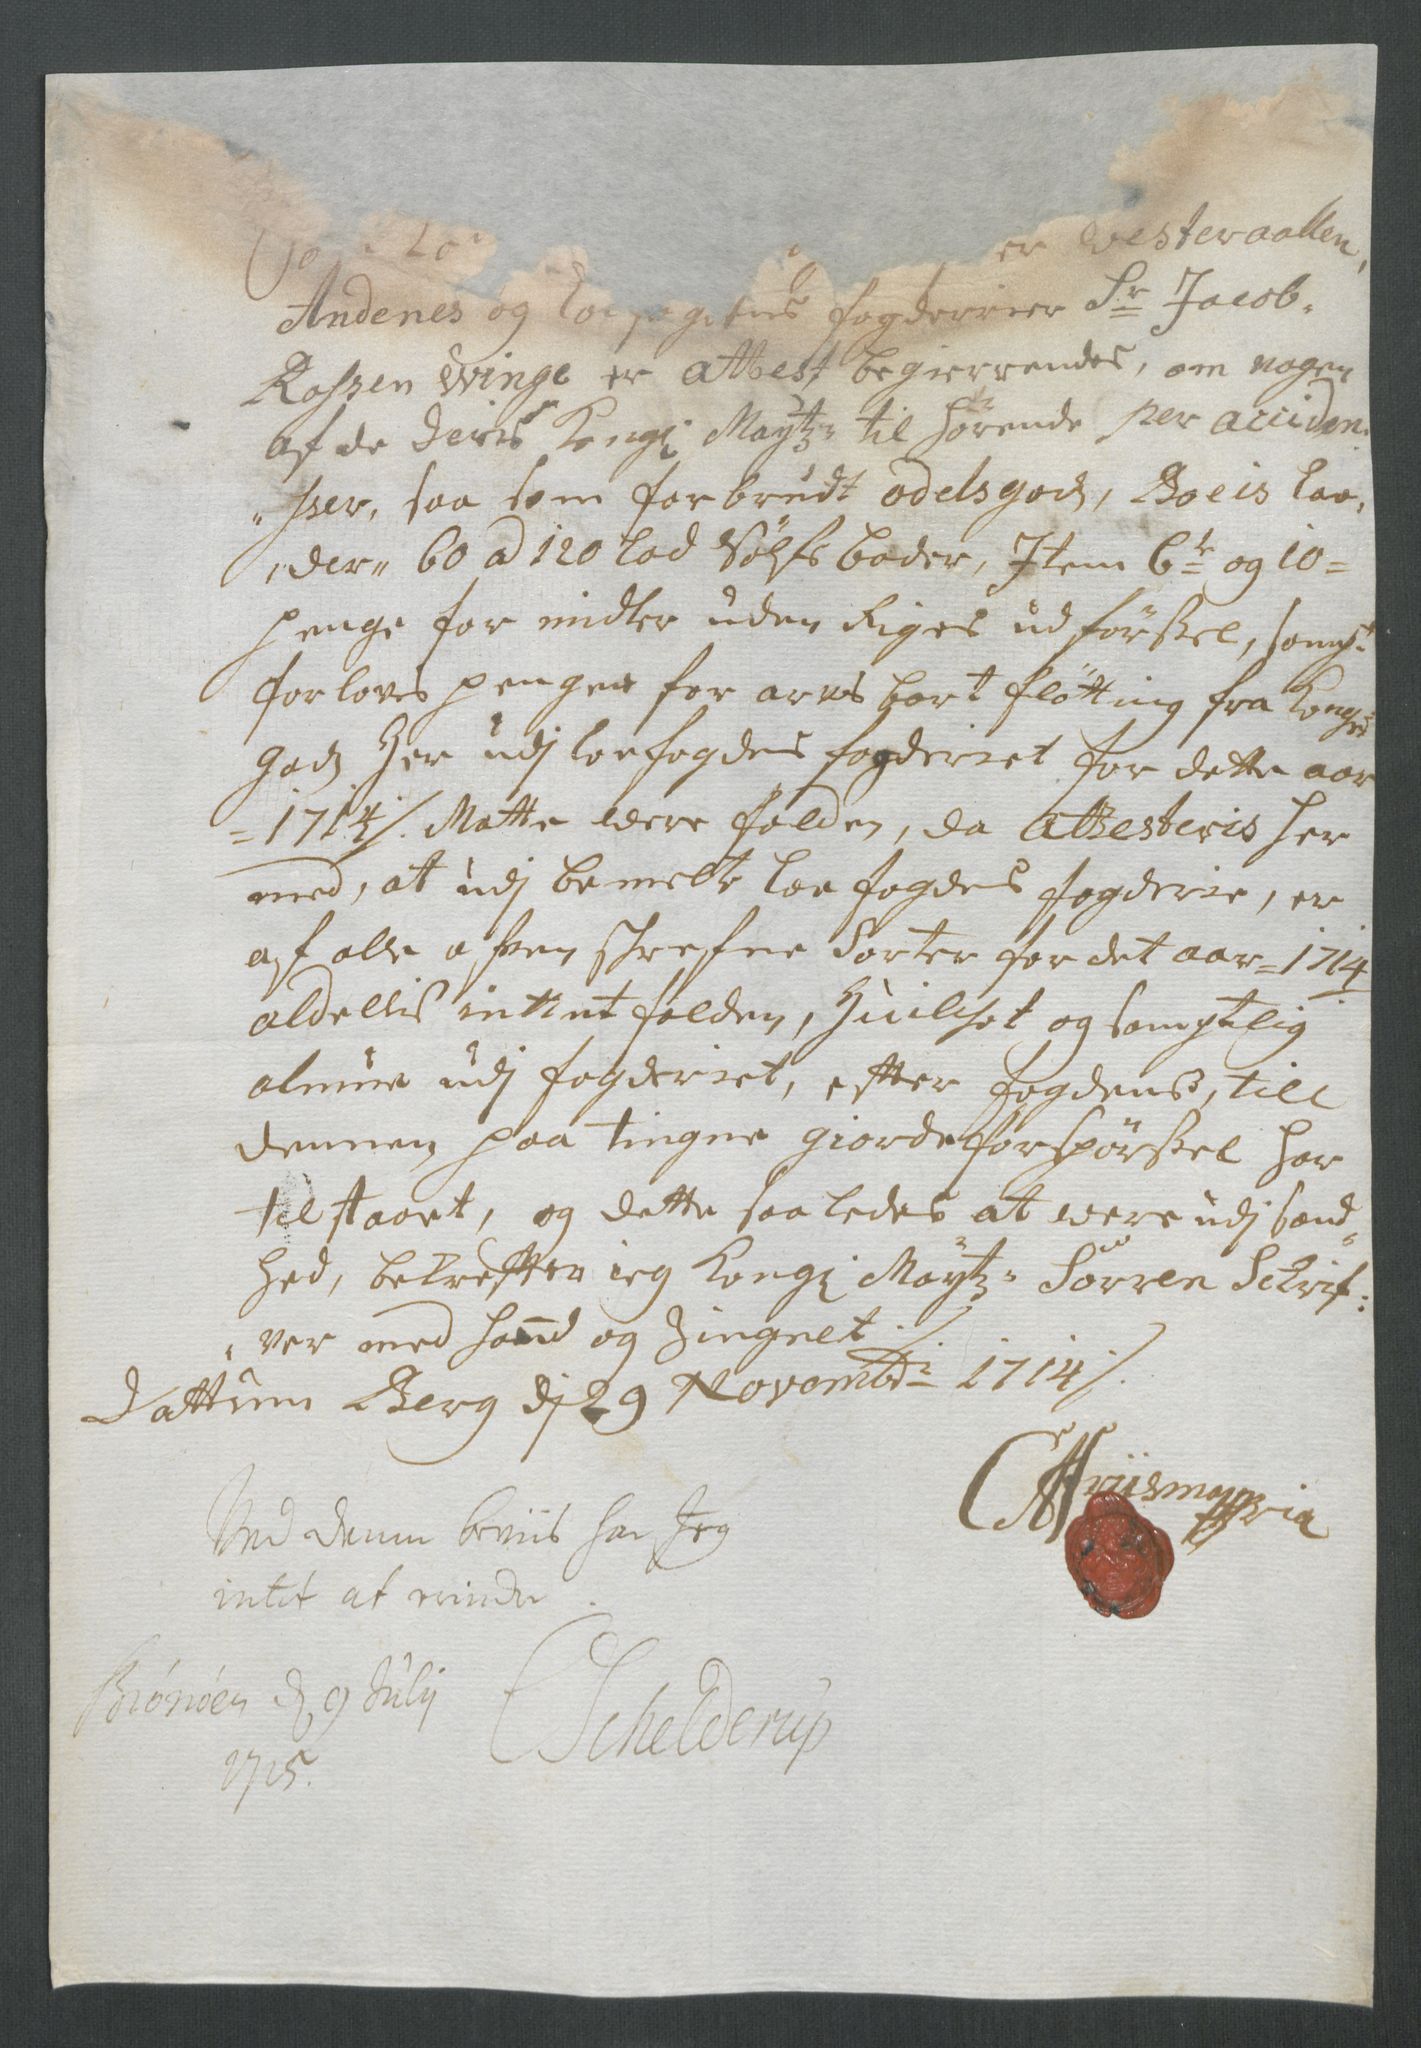 er Vesteraallen,
Andenes og Loefogdens fogderier Sr Jacob
Roszen Winge er attest begierrendes, om nogen
af de deris Kongl Maytz til hørende per acciden
"szer, saa som forbrudt odelsgodz, Boeis Lao,
"der" 60 a 120 lod Sølfs bøder, Item 6te og 10=
penge for midler uden Riges udførszel, sampt
forlovs pengen for arvs bort fløtting fra Kongens
Godz Her udj loefogdes fogderiet for dette aar
=1714/. Motte were falden, da attesteris her
med, at udj bemelte loefogdes fogderie, er
af alle offven schrefne Sorter for det aar=1714
aldellis inttet falden, Huilchet og samptlig
almue udj fogderiet, efter fogdens, till
dennem paa tingne giorde forspørszel har
tilstaaet, og dette saaledes at were udj sand"
hed, bekreffter ieg Kongl Maytz Sorren Schrif:
"ver med haand og Zingnet ./
Dattum Berg dj 29 Novembr 1714/.
Ved denne beviis har Jeg
intet at erindre.
Brónóen d 9 Julij
1715.
CSchelderup